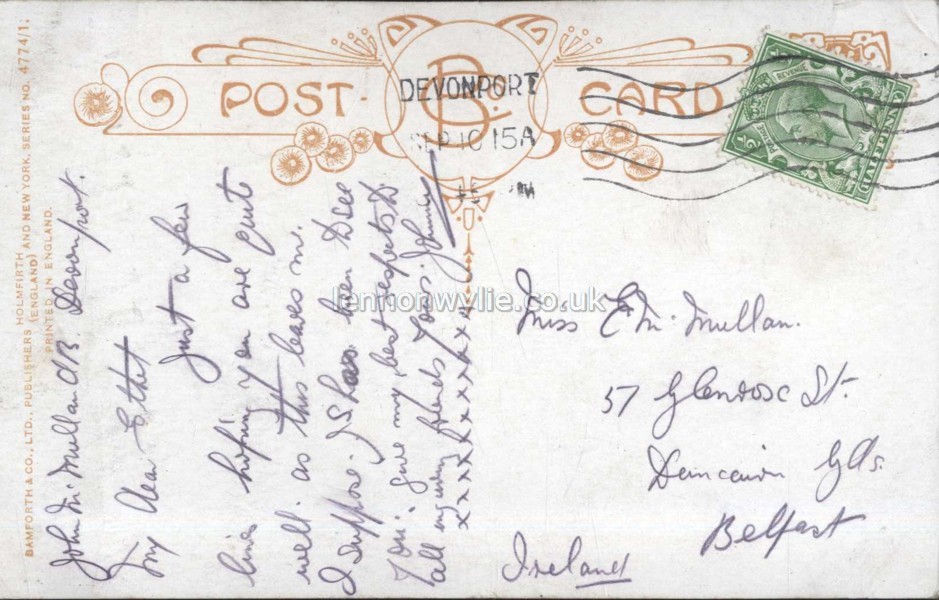 BAMFORTH & CO., LTD., PUBLISHERS HOLMFIRTH
(ENGLAND) AND NEW YORK, SERIES NO. 4774/1;
PRINTED IN ENGLAND.
POST CARD
BC
DEVONPORT
SEP 10 15A
POSTAGE
REVENUE
½
HALFPENNY
John McMullan A/B. Devonport.
My dear Ethel
Just a few
lines hoping you are quite
well. as this leaves me.
I suppose. I shan been See
You. give my best respects to
all enquiring friends Yours. Johnny
x x x x x x x x x x x x
lennonwylie.co.uk
Miss E McMullan.
57 Glenrosa St.
Duncairn Gds.
Belfast
Ireland